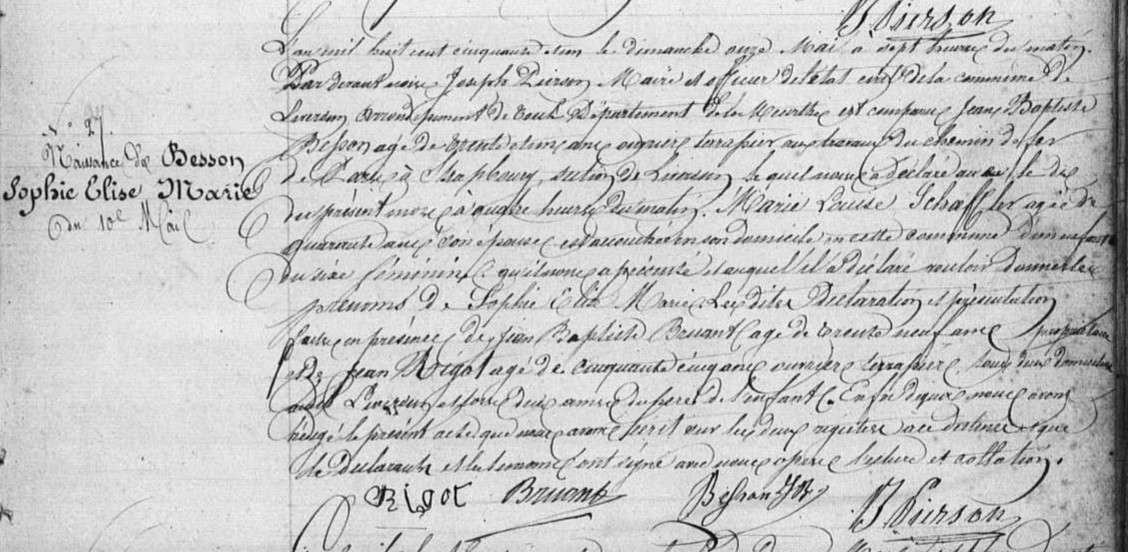 J Pierson
L'an mil huit cent cinquante un le dimanche onze Mai a sept heures du matin.
Par devant nous Joseph Pierson Maire et officier de l'état civil de la commune de
Liverdun arrondissement de Toul Département de la Meurthe est comparu Jean Baptiste
Besson agé de trente et un ans ouvrier terrassier aux travaux du chemin de fer
de Paris à Strasbourg, station de Liverdun lequel nous a déclaré que le dix
du présent mois à quatre heures du matin. Marie Louise Schaffter agée de
quarante ans son épouse est accouchée en son domicile en cette commune d'un enfant
du sexe féminin qu'il nous a présenté et auquel il a déclaré vouloir donner les
prénoms de Sophie Elise Marie Les dites Déclaration et présentation
faites en présence de Jean Baptiste Bruant agé de trente neuf ans propriétaire
et de Jean Rigot agé de cinquante cinq ans ouvrier terrassier tous deux domiciliés
audit Liverdun et tous deux amis du père de l'enfant. En foi de quoi nous avons
rédigé le présent acte que nous avons écrit sur les deux registres à ce destinés et que
le Déclarant et les temoins ont signé avec nous après lecture et collation.
N.° 27.
Naissance de Besson
Sophie Elise Marie
du 10e Mai
Rigot Bruant Besson JB J Pierson